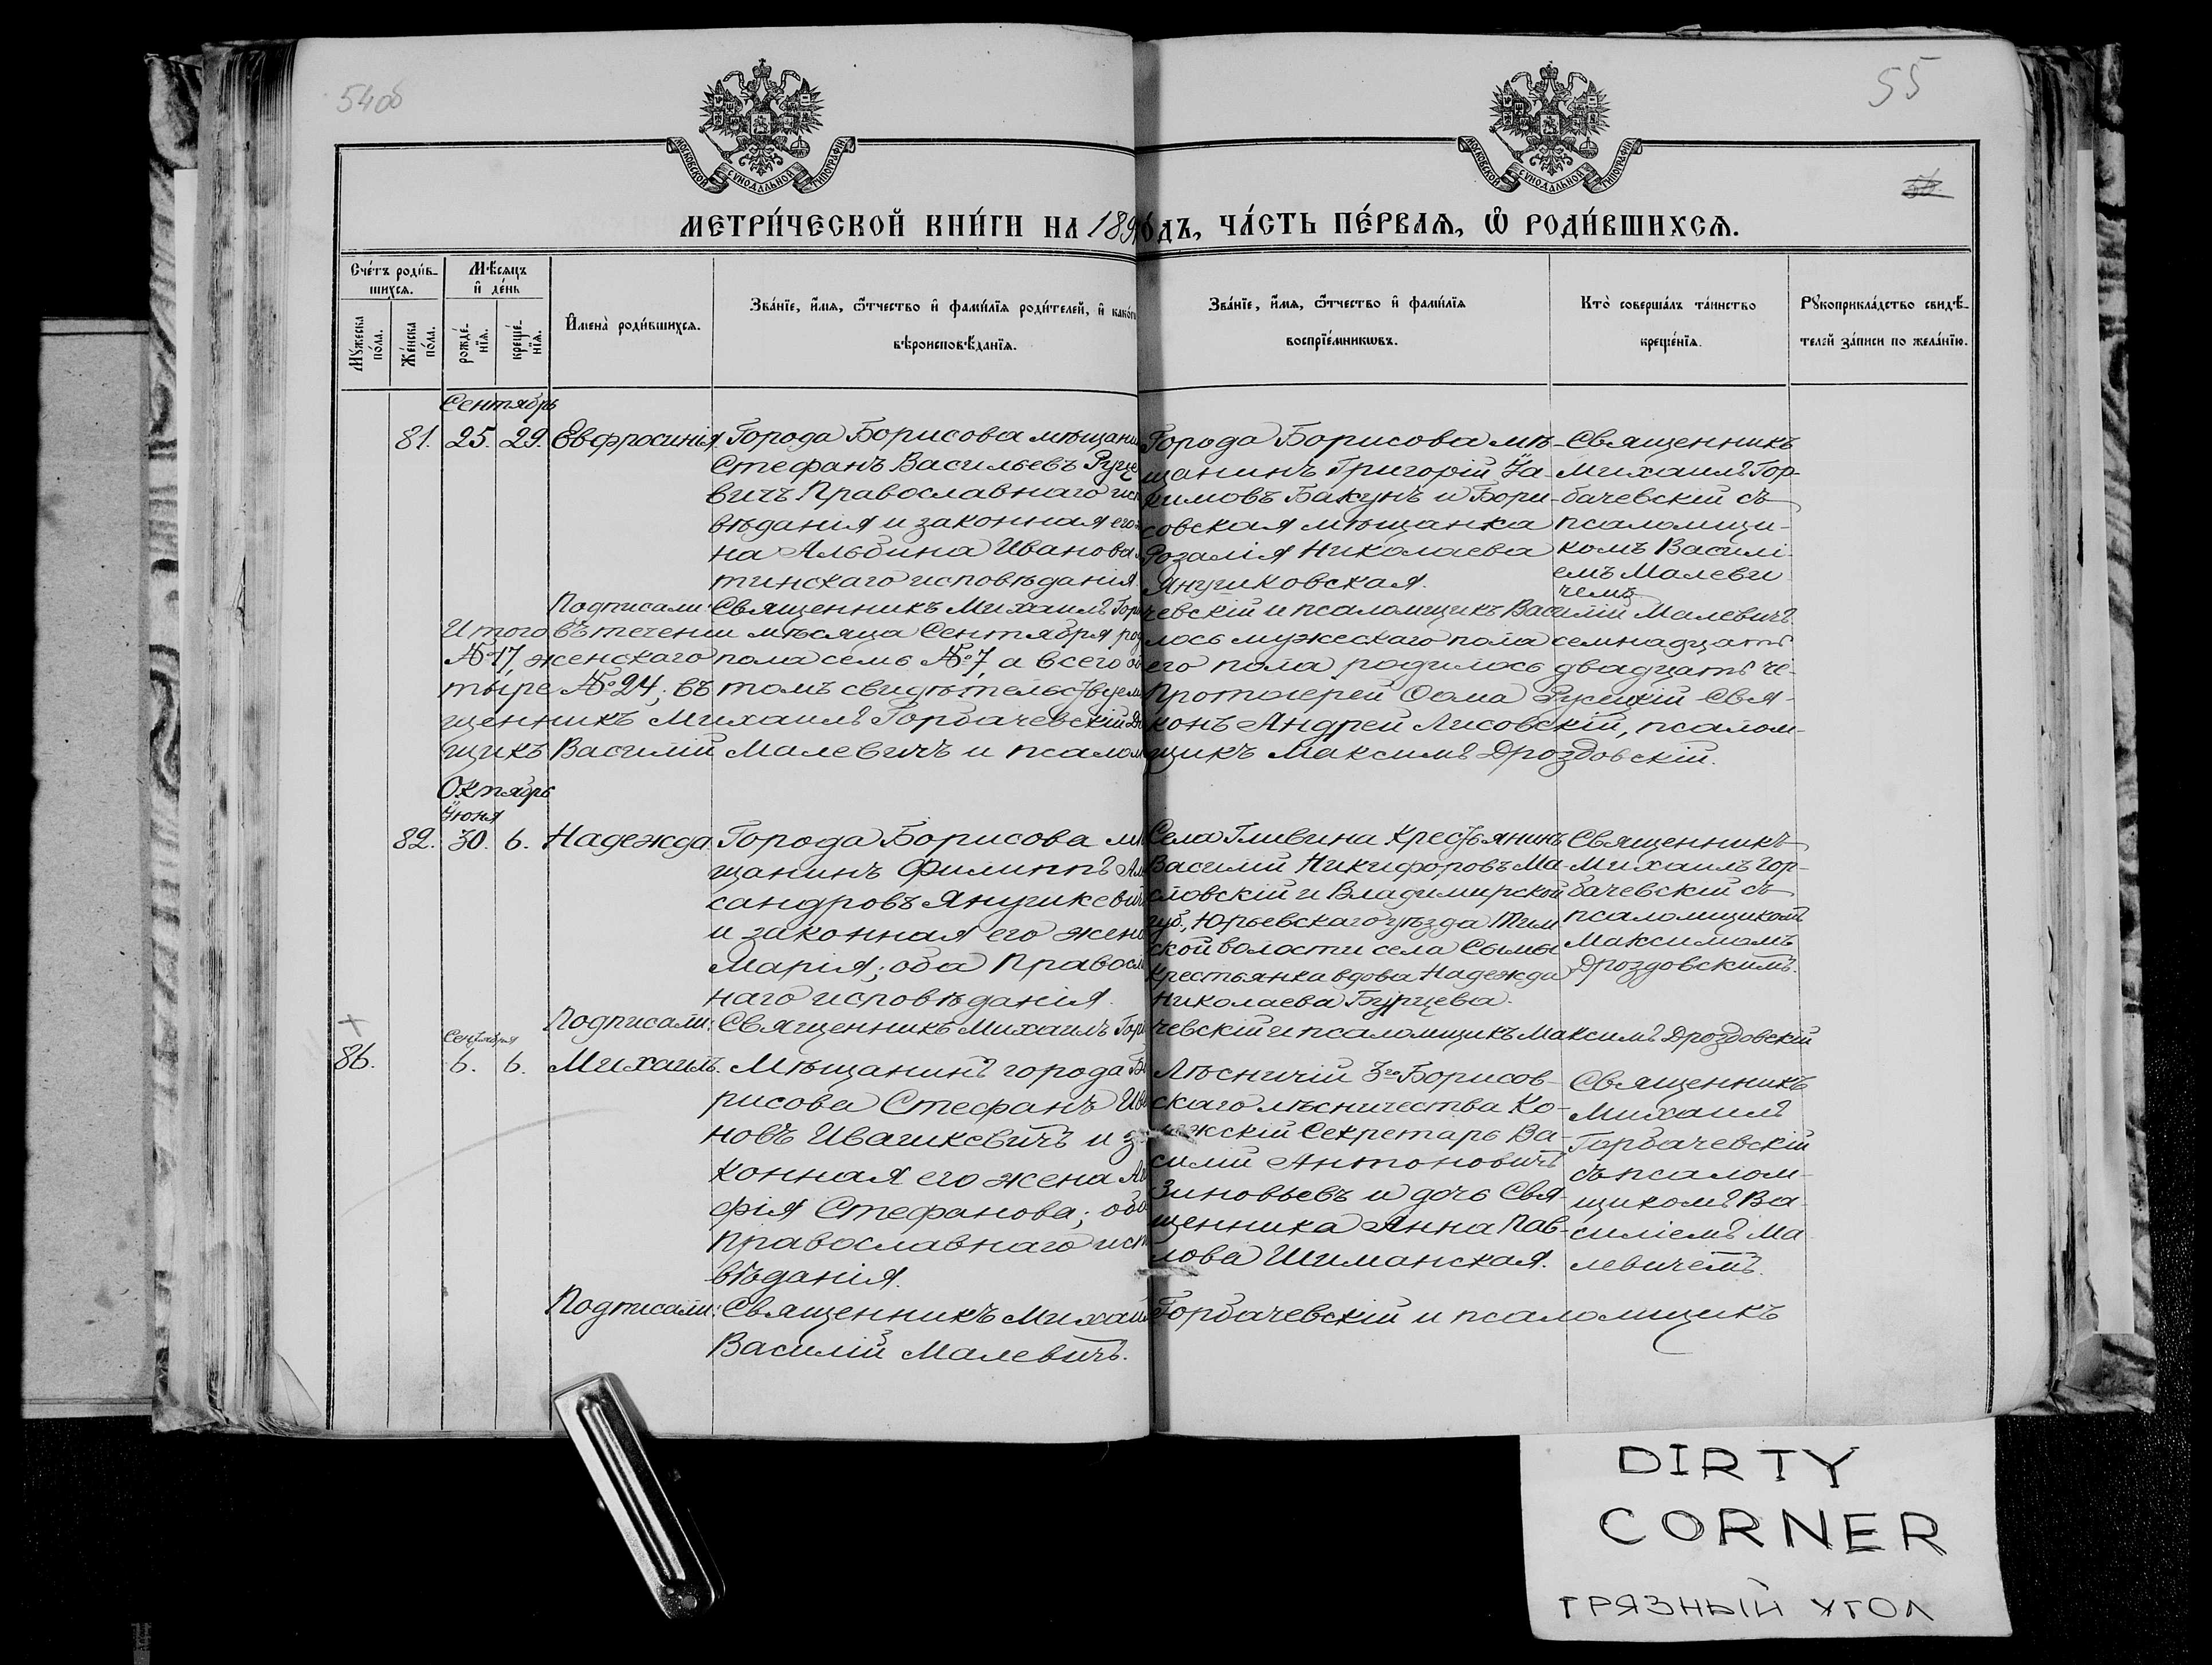 54об
55
МОСКОВСКОЙ СУНОДАЛЬНОЙ ТИПОГРАФIИ
МОСКОВСКОЙ СУНОДАЛЬНОЙ ТИПОГРАФIИ
МЕТРИ́ЧЕСКОЙ КНИ́ГИ НА 189 ГО́ДЪ, ЧА́СТЬ ПЕ́РВАѦ, Ѡ РОДИ́ВШИХСѦ.
Сче́тъ роди́в-
шихсѧ.
Му́жеска по́ла.
Же́нска по́ла.
Мѣсѧцъ
и де́нь
рожде́-
нїѧ.
креще́-
нїѧ.
Имена̀ роди́вшихсѧ.
Зва́нїе, и́мѧ, ѻ́тчество и фами́лїѧ роди́телей, и како́гѡ
вѣроисповѣ́данїѧ.
Зва́нїе, и́мѧ, ѻ́тчество и фами́лїѧ
воспрїе́мникѡвъ.
Кто̀ соверша́лъ та́инство
креще́нїѧ.
Рукоприкла́дство свидѣ́-
телей за́писи по жела́нїю.
Сентябрь
81. 25. 29. Евфросинія
Города Борисова мѣщанин
Стефанъ Васильевъ Руце
вичъ Православнаго исп
вѣданія и законная его ж
на Альбина Иванова
тинскаго исповѣданія.
Города Борисова мѣ-
щанинъ Григорій Іа-
кимовъ Бакунъ и Бори-
совская мѣщанка
Розалія Николаева
Янушковская.
Священникъ
Михаилъ Гор-
бачевскій съ
псаломщи-
комъ Василі-
емъ Малеви
чемъ
Подписали: Священникъ Михаилъ Гор чевскій и псаломщикъ Василій Малевичъ.
Итого въ теченіи мѣсяца Сентября род лось мужескаго пола семнадцать
№ 17, женскаго пола семь № 7, а всего об его пола родилось двадцать че-
тыре № 24; въ томъ свидѣтельствуем Протоіерей Ѳома Русецкій Свя-
щенникъ Михаилъ Горбачевскій Дь конъ Андрей Лисовскій, псалом-
щикъ Василій Малевичъ и псалом щикъ Максимъ Дроздовскій.
Октябрь
Іюня
82. 30. 6. Надежда
Города Борисова мѣ
щанинъ Филиппъ Ал
сандровъ Янушкевич
и законная его жена
Марія; оба Правосл
наго исповѣданія.
Села Гливина крестьянинъ
Василій Никифоровъ Ма-
словскій и Владимирской
губ., Юрьевскаго уѣзда Тим
ской волости села Симы
крестьянка вдова Надежда
Николаева Бурцева.
Священникъ
Михаилъ Гор-
бачевскій съ
псаломщикомъ
Максимомъ
Дроздовскимъ.
Подписали: Священникъ Михаилъ Гор чевскій и псаломщикъ Максимъ Дроздовскій
Сентября
86. 6. 6. Михаилъ.
Мѣщанинъ города Бо
рисова Стефанъ Ива
новъ Ивашкевичъ и за
конная его жена
фія Стефанова; оба
Православнаго исп
вѣданія.
Лѣсничій 3го Борисов-
скаго лѣсничества Ко-
лежскій Секретарь Ва-
силій Антоновичъ
Зиновьевъ и дочь Свя-
щенника Анна Пав-
лова Шиманская.
Священникъ
Михаилъ
Горбачевскій
съ псалом-
щикомъ Ва-
силіемъ Ма
левичемъ.
Подписали: Священникъ Михаил Горбачевскій и псаломщикъ
Василій Малевичъ.
DIRTY
CORNER
ГРЯЗНЫЙ УГОЛ